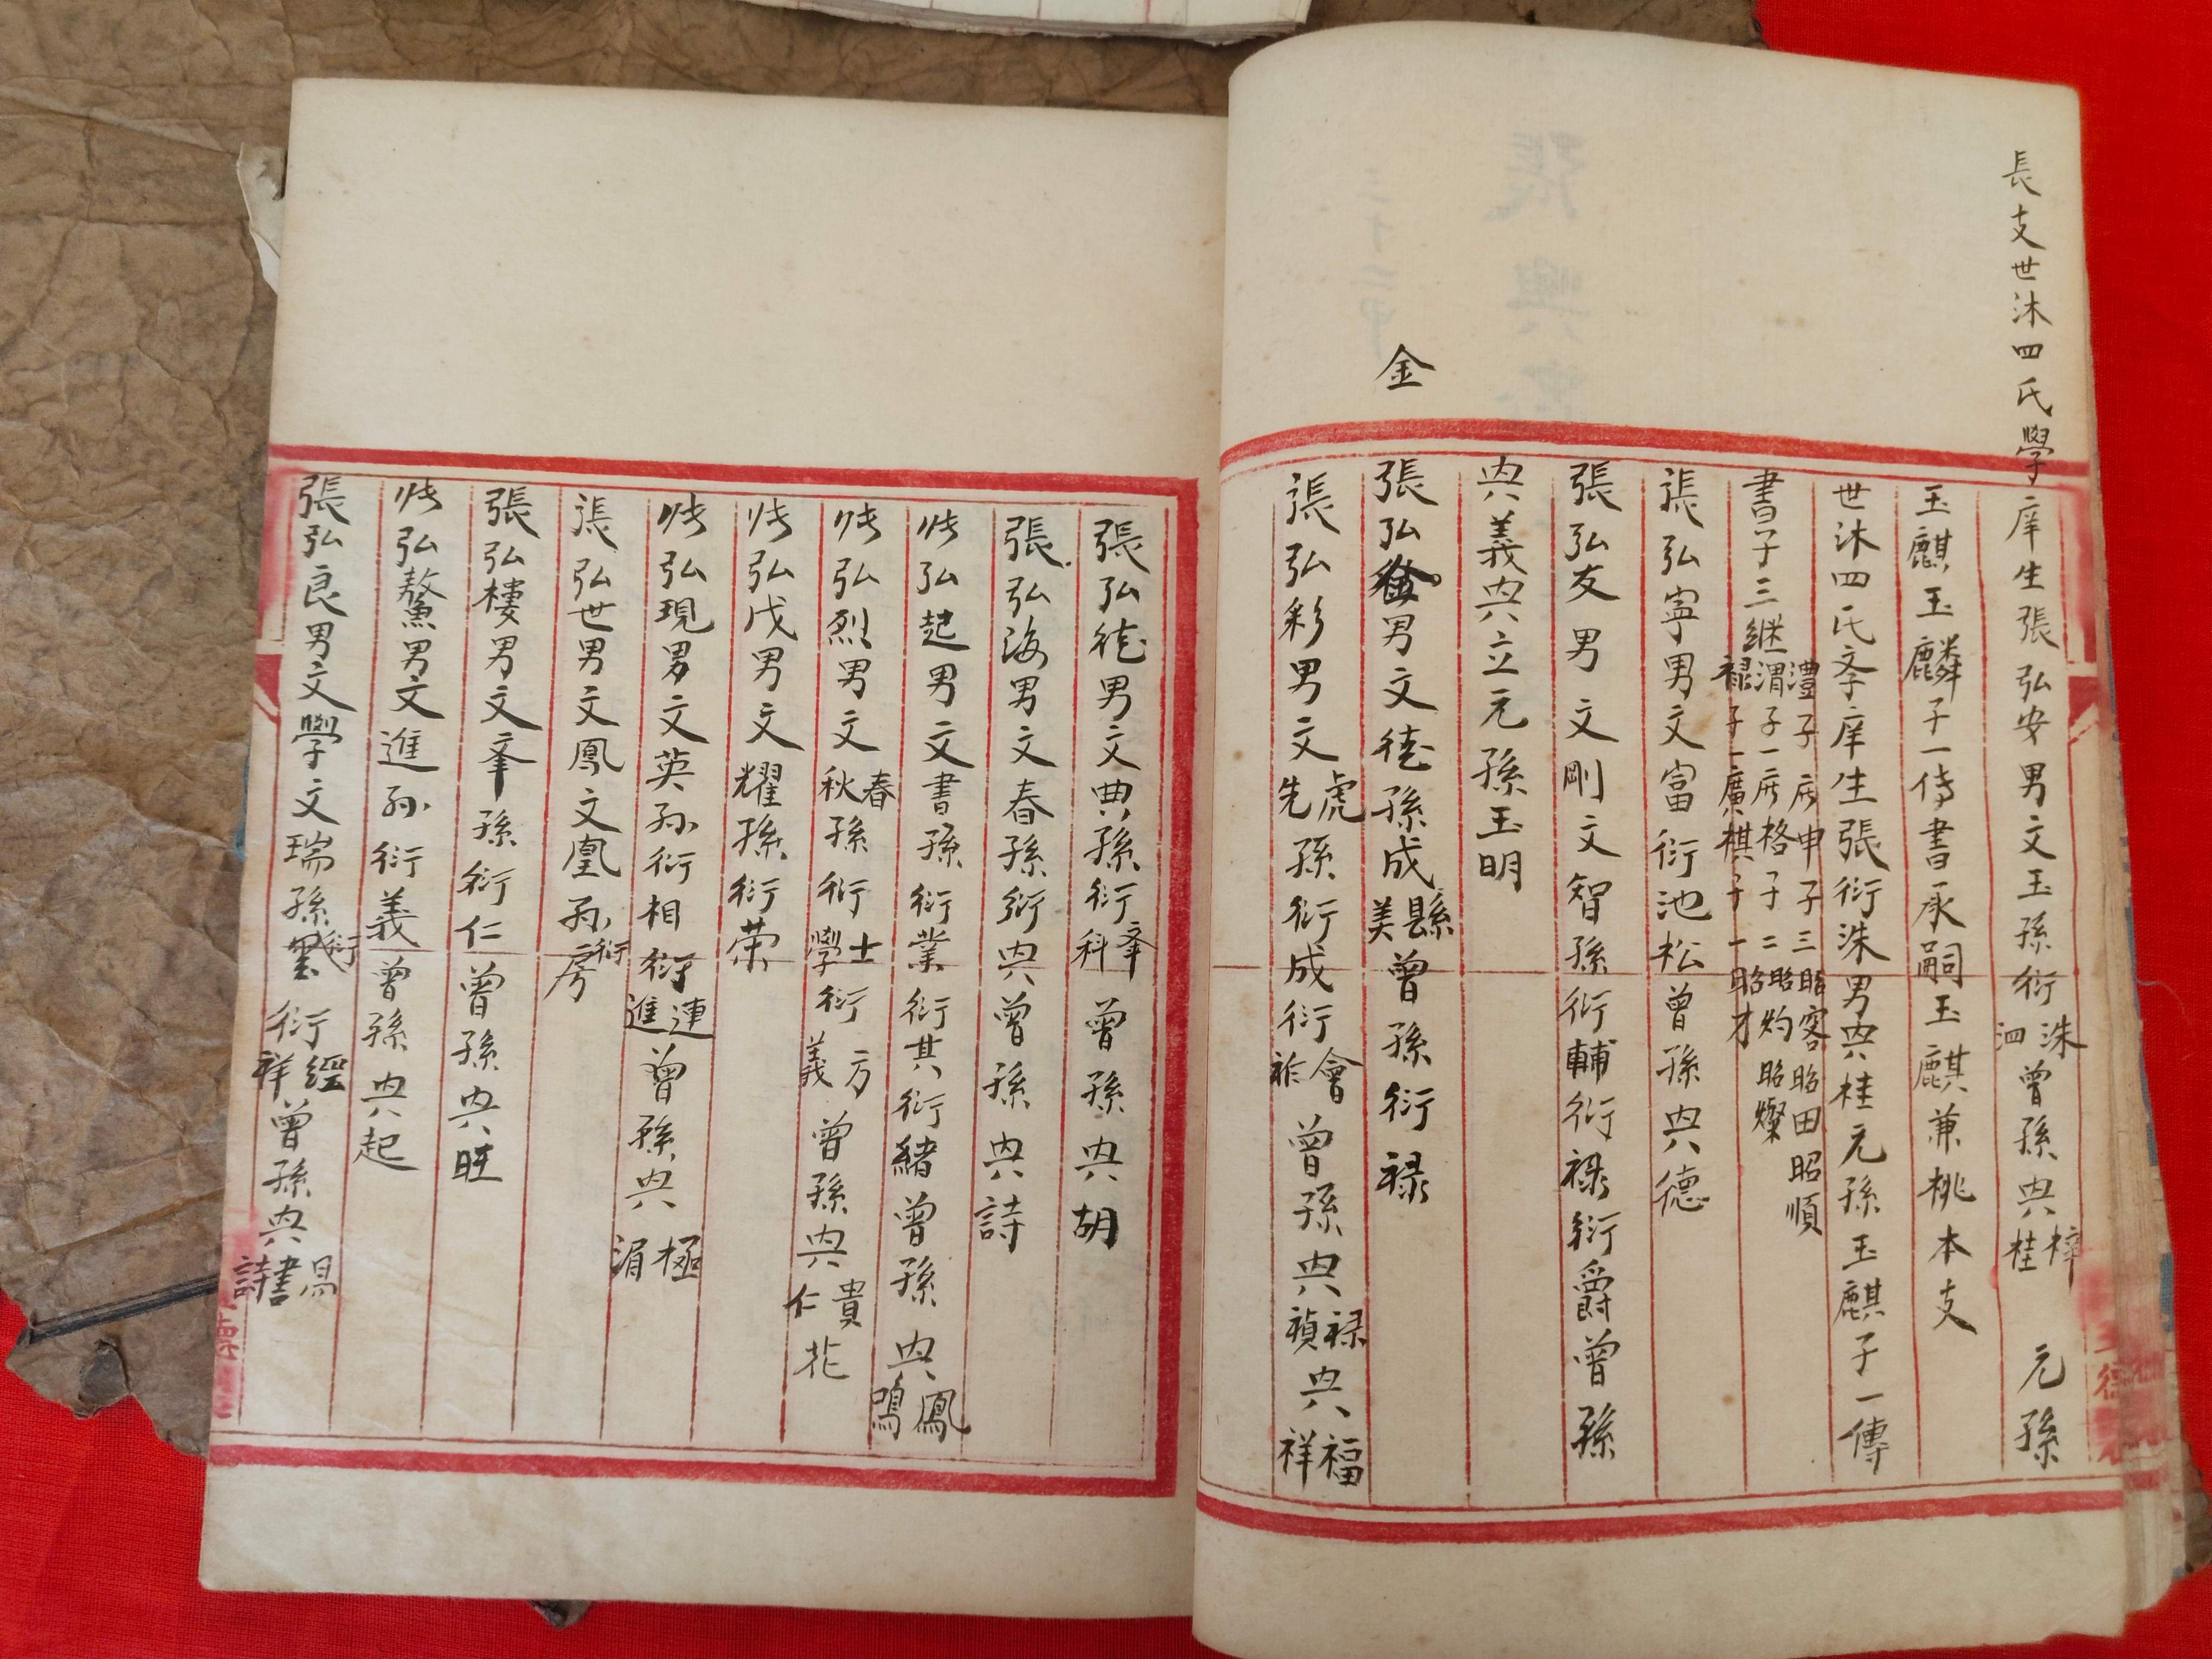 長支世沐四氏學庠生張弘安男文玉孫衍洙泗曾孫㒷梓桂 元孫
玉麒玉麟子一侍書承嗣玉麒兼祧本支
世沐四氏斈庠生張衍洙男㒷桂元孫玉麒子一傳
書子三継澧子 申子三昭容昭田昭順
渭子一 格子二昭灼昭燦
禄子一廣祺子一昭才
張弘寧男文富衍池松曾孫㒷德
張弘友男文剛文智孫衍輔衍禄衍爵曾孫
㒷義㒷立元孫玉明
金
張弘男文徳孫成縣美曾孫衍禄
張弘彩男文虎先孫衍成衍會祚曾孫㒷禄禎㒷福祥
張弘徳男文典孫衍峯科曾孫㒷胡
張弘海男文春孫衍㒷曾孫㒷詩
张弘起男文書孫衍業衍其衍緒曾孫㒷鳳鳴
张弘烈男文春秋孫衍士學衍方義曾孫㒷貴仁花
张弘戊男文耀孫衍荣
张弘現男文英孙衍相衍連進曾孫㒷極湄
張弘世男文鳳文凰孙衍房
張弘樓男文峯孫衍仁曾孫㒷旺
张弘鰲男文進孙衍義曾孫㒷起
張弘良男文學文瑞孫衍衍經祥曾孫㒷書詩